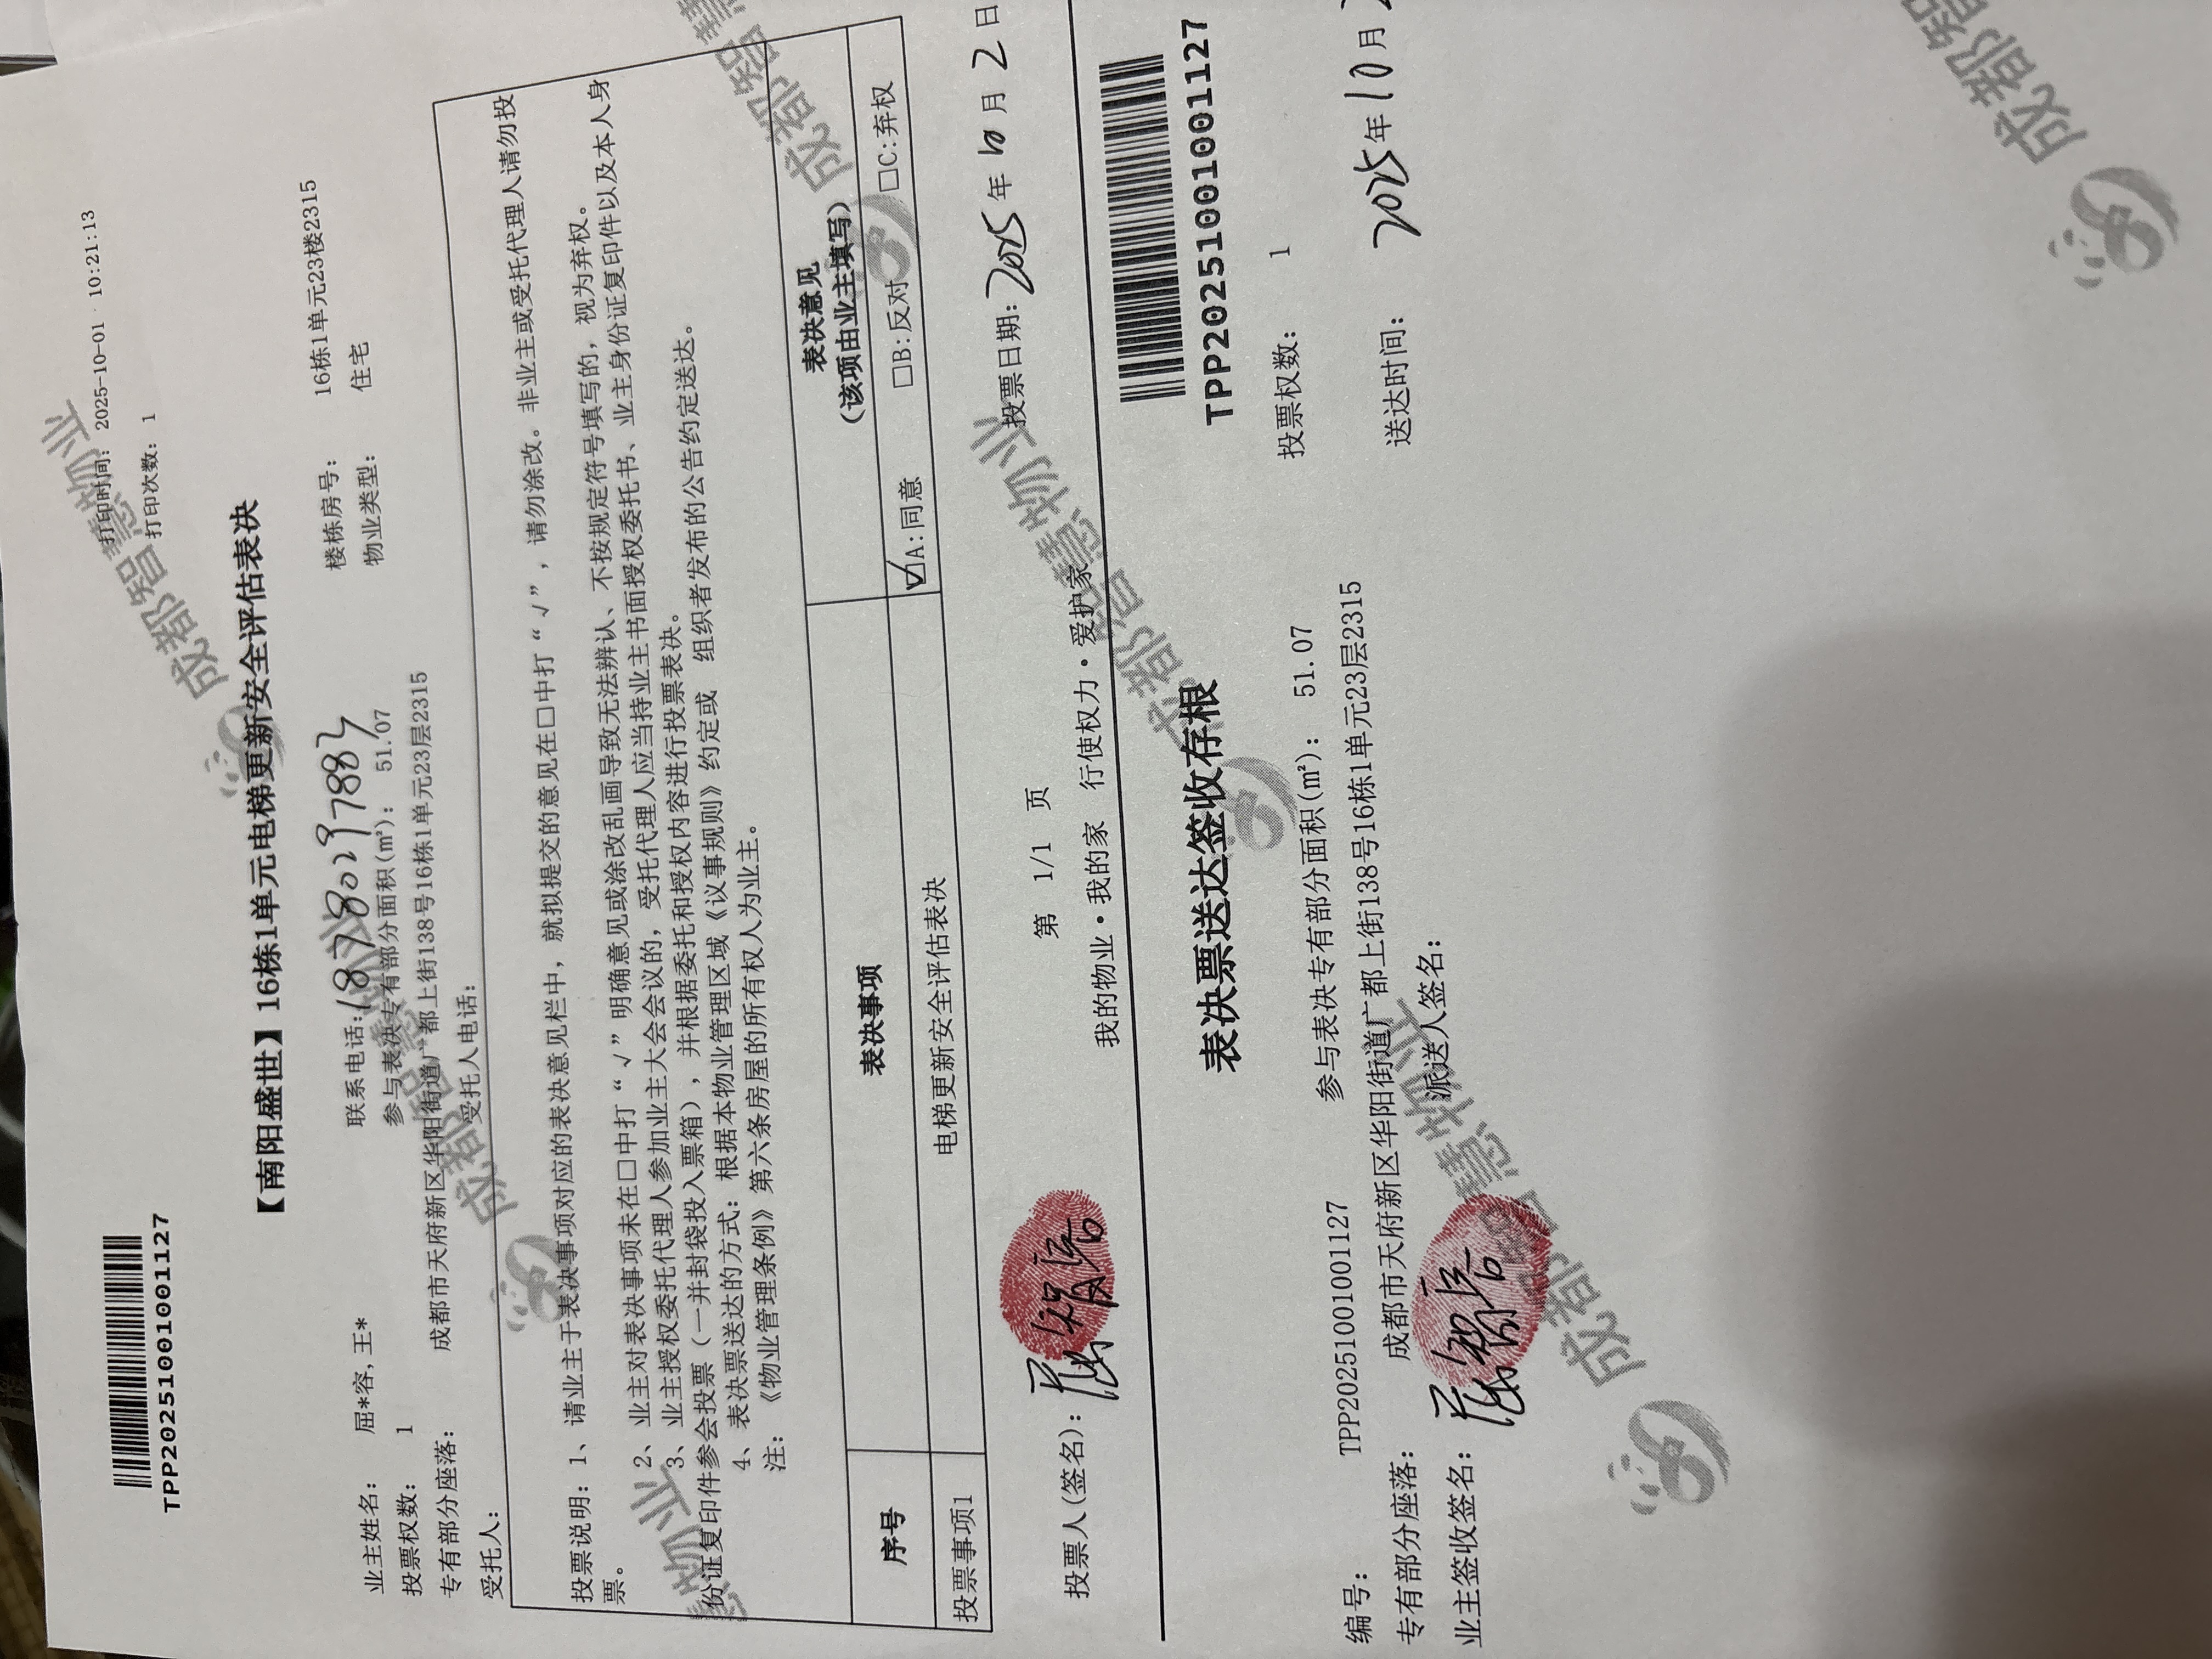 TPP20251001001127
打印时间： 2025-10-01 10:21:13
打印次数： 1
【南阳盛世】16栋1单元电梯更新安全评估表决
业主姓名： 屈*容,王* 联系电话：18780297883 楼栋房号： 16栋1单元23楼2315
投票权数： 1 参与表决专有部分面积(m²)： 51.07 物业类型： 住宅
专有部分座落： 成都市天府新区华阳街道广都上街138号16栋1单元23层2315
受托人： 受托人电话：
投票说明：1、请业主于表决事项对应的表决意见栏中，就拟提交的意见在□中打“√”，请勿涂改。非业主或受托代理人请勿投
票。
2、业主对表决事项未在□中打“√”明确意见或涂改乱画导致无法辨认、不按规定符号填写的，视为弃权。
3、业主授权委托代理人参加业主大会会议的，受托代理人应当持业主书面授权委托书、业主身份证复印件以及本人身
份证复印件参会投票（一并封袋投入票箱），并根据委托和授权内容进行投票表决。
4、表决票送达的方式：根据本物业管理区域《议事规则》约定或 组织者发布的公告约定送达。
注：《物业管理条例》第六条房屋的所有权人为业主。
序号 表决事项 表决意见
（该项由业主填写）
投票事项1 电梯更新安全评估表决 ☑A:同意 □B:反对 □C:弃权
投票日期：2025年10月2日
投票人(签名)：屈智容 第 1/1 页
我的物业·我的家 行使权力·爱护家
表决票送达签收存根
TPP20251001001127
编号： TPP20251001001127 参与表决专有部分面积(m²)： 51.07 投票权数： 1
专有部分座落： 成都市天府新区华阳街道广都上街138号16栋1单元23层2315
送达时间： 2025年10月
业主签收签名：屈智容 派送人签名：
成都智慧物业
成都智慧物业
慧物业
成都智慧
成都智慧物业
成都智慧物业
成都智